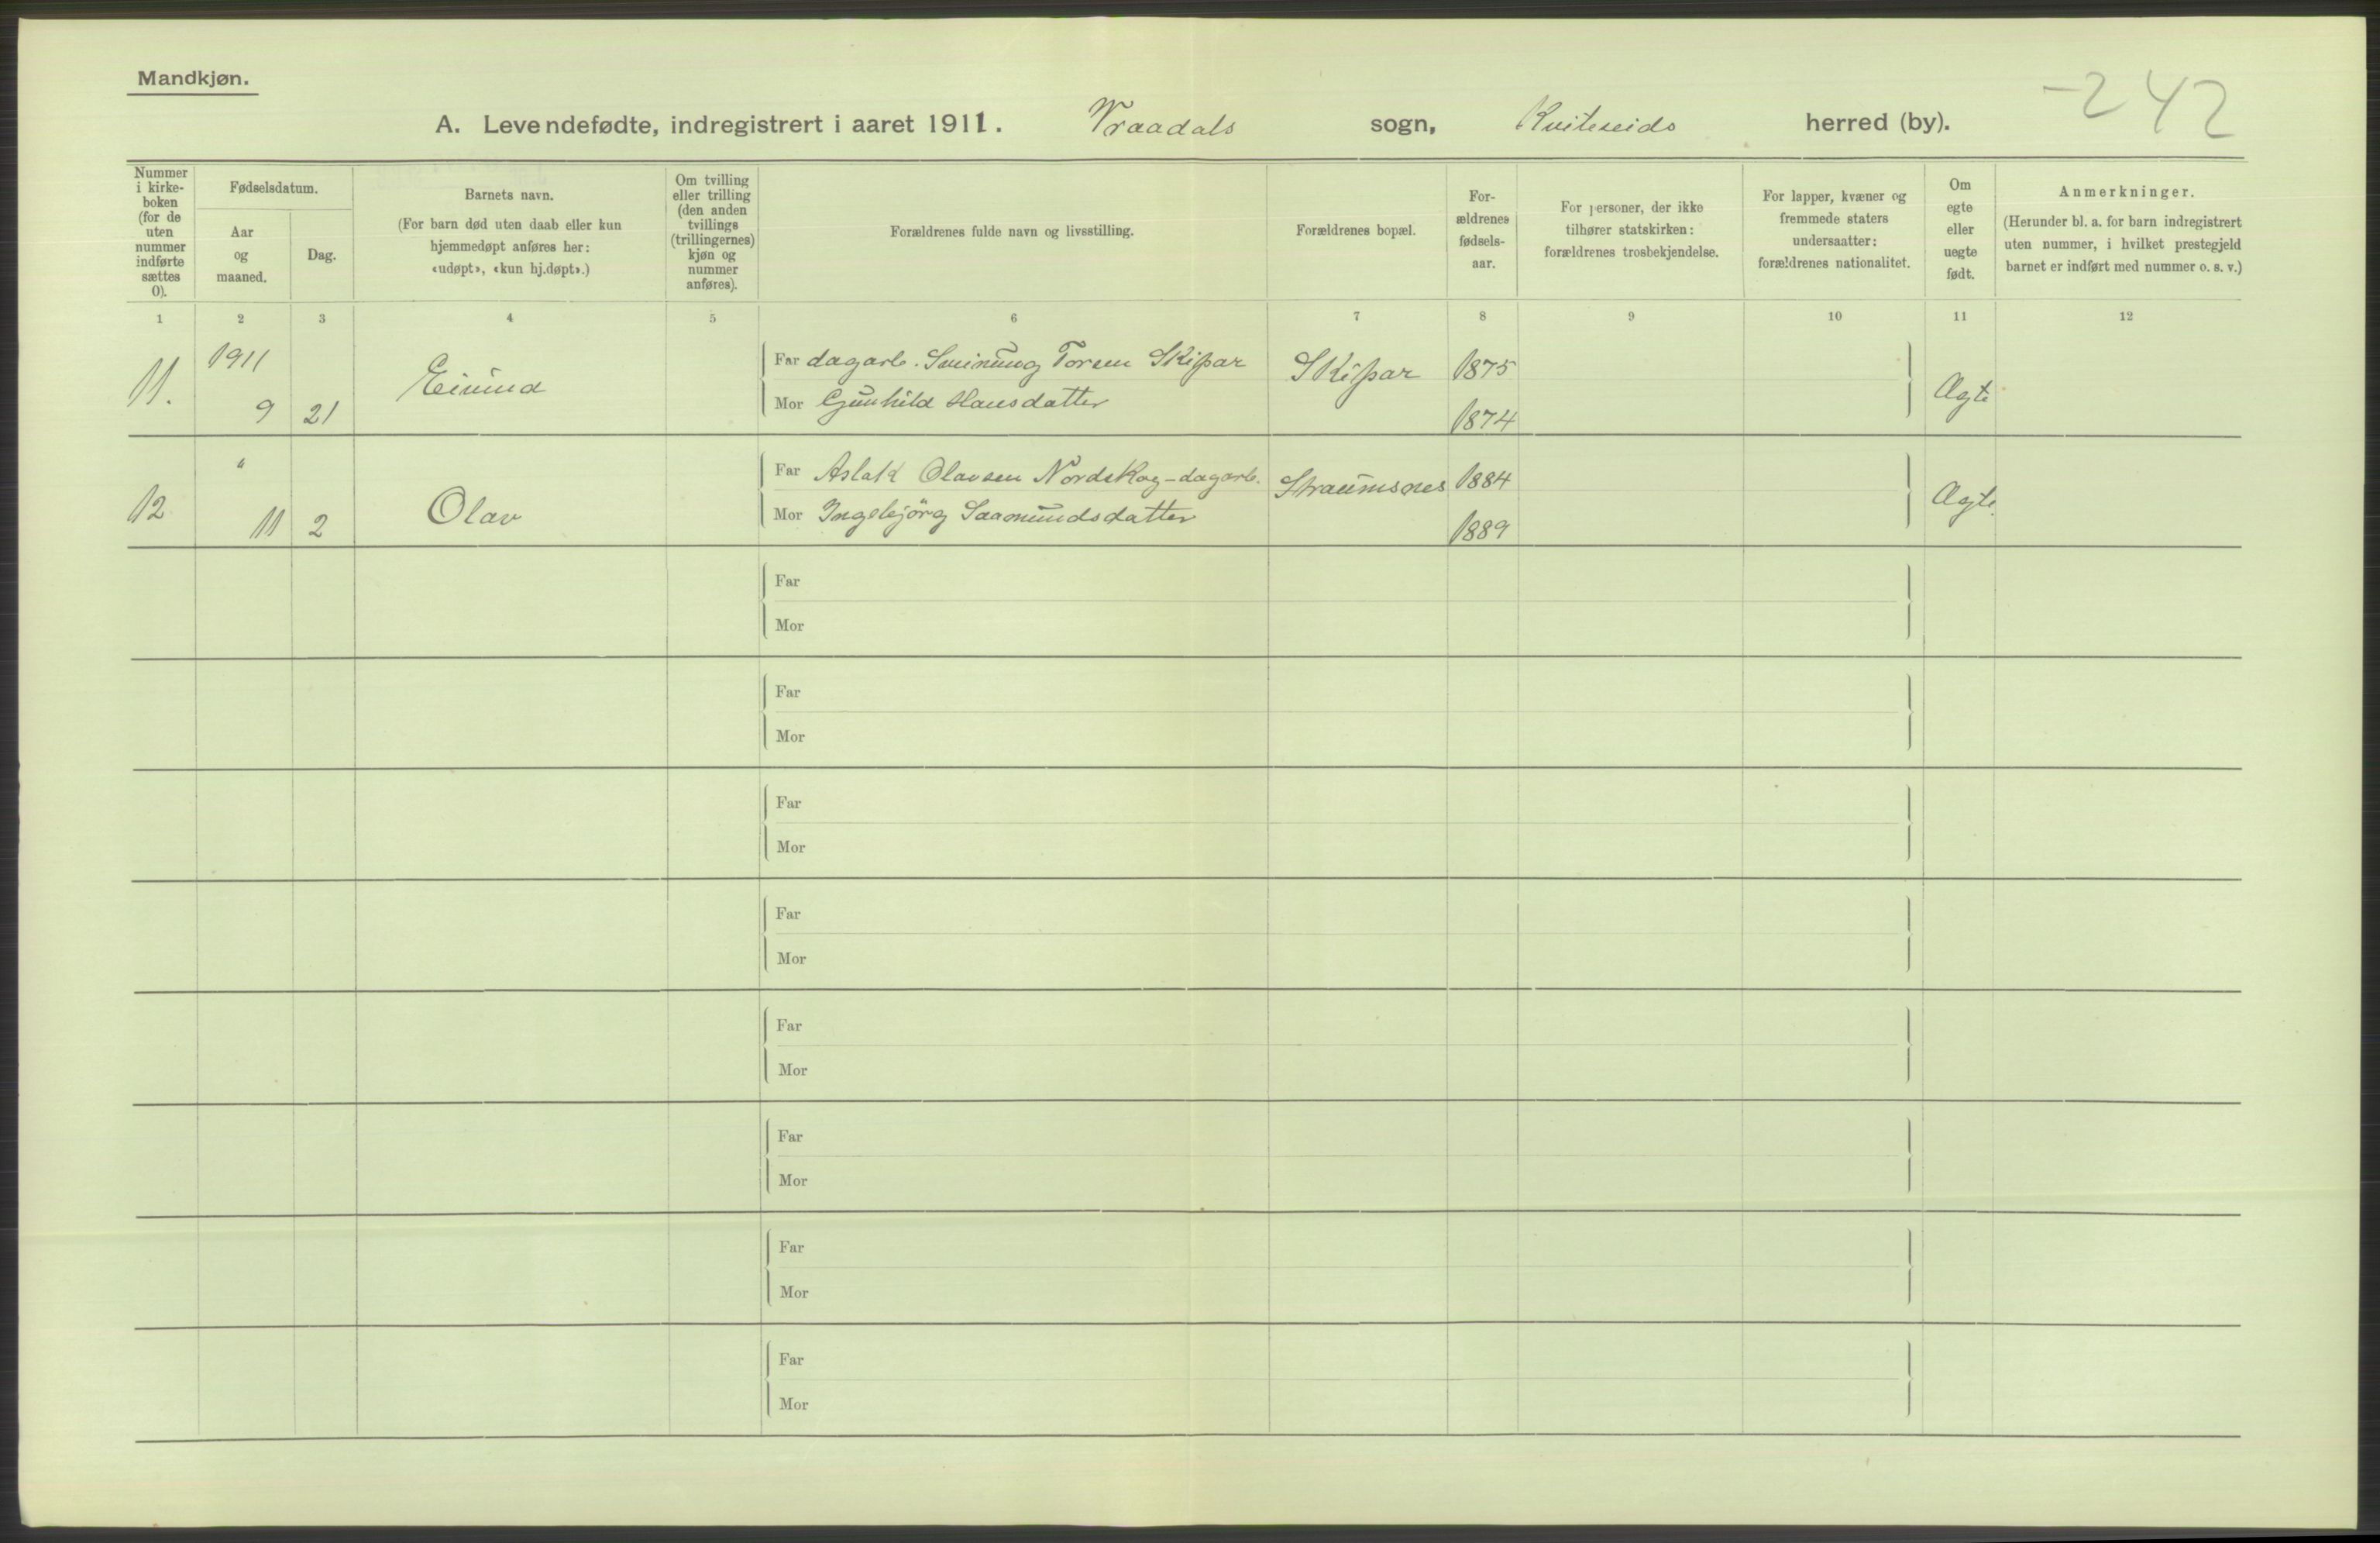 Mandkjøn.
-242
A. Levendefødte, indregistrert i aaret 1911. Vraadals sogn, Kviteseids herred (by).
Nummer i kirke-boken (for de uten nummer indførte sættes 0).
Fødselsdatum.
Aar og maaned.
Dag.
Barnets navn.
(For barn død uten daab eller kun hjemmedøpt anføres her: «udøpt», «kun hj.døpt».)
Om tvilling eller trilling (den anden tvillings (trillingernes) kjøn og nummer anføres).
Forældrenes fulde navn og livsstilling.
Forældrenes bopæl.
For-ældrenes fødsels-aar.
For personer, der ikke tilhører statskirken: forældrenes trosbekjendelse.
For lapper, kvæner og fremmede staters undersaatter: forældrenes nationalitet.
Om egte eller uegte født.
Anmerkninger.
(Herunder bl. a. for barn indregistrert uten nummer, i hvilket prestegjeld barnet er indført med nummer o. s. v.)
1 2 3 4 5 6 7 8 9 10 11 12
11. 1911 9 21 Eivind Far dagarb. Sveinung Toresen Skipar Skipar 1875 Ægte
Mor Gunhild Hansdatter 1874
12 " 11 2 Olav Far Aslak Olavsen Nordskog - dagarb. Straumsnes 1884 Ægte.
Mor Ingebjörg Saamundsdatter 1889
Far
Mor
Far
Mor
Far
Mor
Far
Mor
Far
Mor
Far
Mor
Far
Mor
Far
Mor